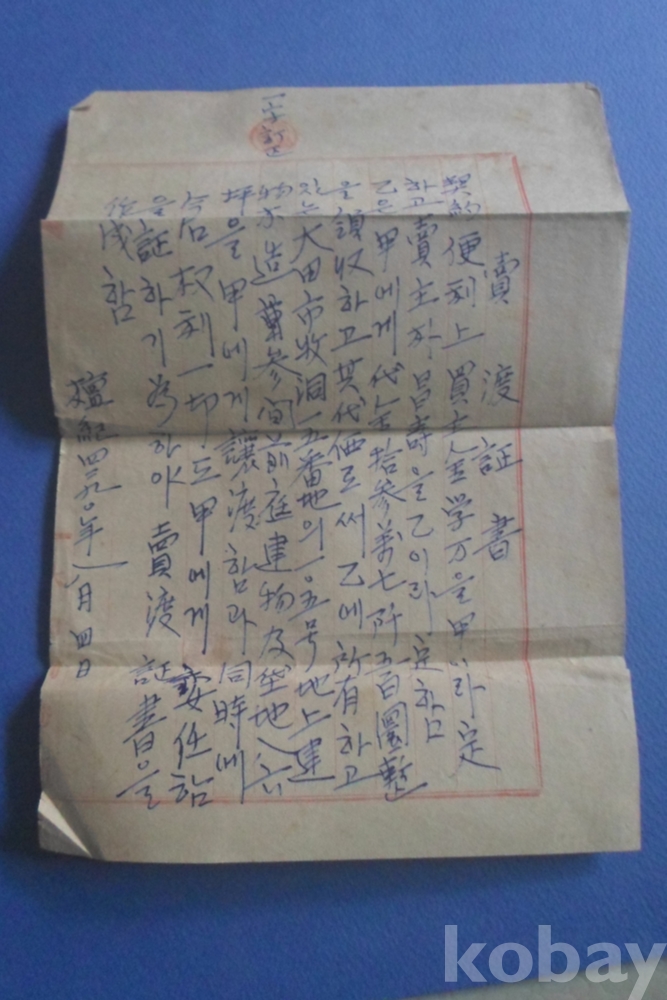 賣渡証書
契約便利上買主金学万을甲이라定
하고賣主朴昌壽을乙이라定함
乙은甲에게代金拾參萬七阡五百圜整
을領收하고其代価로써乙에所有하고
있는大田市牧洞一五番地의一五号地上建
物木造葺參間前庭建物及垈地八
坪을甲에게讓渡함과同時에
權利一切도甲에게委任함
을証하기爲하야賣渡証書을
作成함
檀紀四二九〇年八月四日
一字訂正
kobay